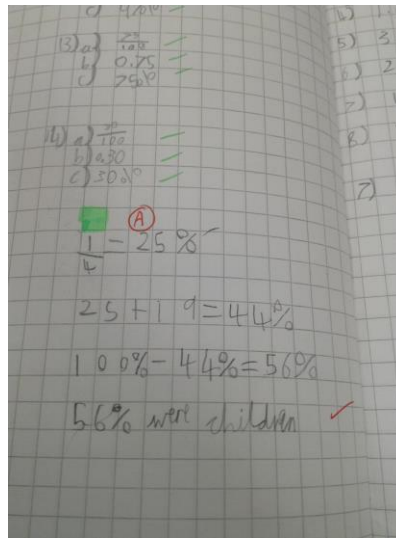 c) 4%
13) a) 75/100
b) 0.75
c) 75%
14) a) 30/100
b) 0.30
c) 30%
A
1/4 = 25%
25 + 19 = 44%
100% - 44% = 56%
56% were children
5) 3
6) 2
7)
8)
7)